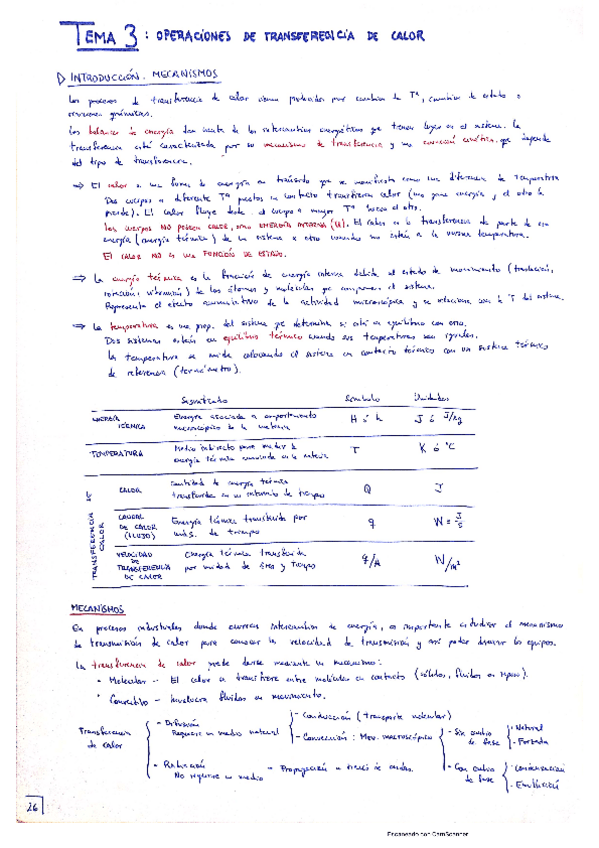 TEMA 3: OPERACIONES DE TRANSFERENCIA DE CALOR
1) INTRODUCCIÓN. MECANISMOS
Los procesos de transferencia de calor vienen producidos por cambios de Tª, cambios de estado o
reacciones químicas.
Los balances de energía dan cuenta de los intercambios energéticos que tienen lugar en el sistema. La
transferencia está caracterizada por su mecanismo de transferencia y una ecuación cinética que depende
del tipo de transferencia.
⇒ El calor es una forma de energía en tránsito que se manifiesta como una diferencia de temperatura
Dos cuerpos a diferente Tª puestos en contacto transfieren calor (uno gana energía y el otro la
pierde). El calor fluye desde el cuerpo a mayor Tª hacia el otro.
Los cuerpos NO POSEEN CALOR, sino ENERGÍA INTERNA (U). El calor es la transferencia de parte de esa
energía (energía térmica) de un sistema a otro cuando no están a la misma temperatura.
EL CALOR NO ES UNA FUNCIÓN DE ESTADO.
⇒ La energía térmica es la función de energía interna debida al estado de movimiento (traslación,
rotación, vibración) de los átomos y moléculas que componen el sistema.
Representa el efecto acumulativo de la actividad microscópica y se relaciona con la T del sistema.
⇒ La temperatura es una prop. del sistema que determina si está en equilibrio con otro.
Dos sistemas están en equilibrio térmico cuando sus temperaturas son iguales.
La temperatura se mide colocando el sistema en contacto térmico con un sistema térmico
de referencia (termómetro).
Significado Símbolo Unidades
ENERGÍA TÉRMICA Energía asociada a comportamiento microscópico de la materia H ó h J ó J/kg
TEMPERATURA Medio indirecto para medir la energía térmica contenida en la materia T K ó ºC
TRANSFERENCIA DE CALOR
CALOR Cantidad de energía térmica transferida en un intervalo de tiempo Q J
CAUDAL DE CALOR (FLUJO) Energía térmica transferida por unid. de tiempo q W = J/s
VELOCIDAD DE TRANSFERENCIA DE CALOR Energía térmica transferida por unidad de área y tiempo q/A W/m²
MECANISMOS
En procesos industriales donde ocurren intercambios de energía, es importante estudiar el mecanismo
de transmisión de calor para conocer la velocidad de transmisión y así poder diseñar los equipos.
La transferencia de calor puede darse mediante un mecanismo:
• Molecular - El calor se transfiere entre moléculas en contacto (sólidos, fluidos en reposo).
• Convectivo - Involucra fluidos en movimiento.
Transferencia de calor
- Difusión
Requiere un medio material
- Conducción (transporte molecular)
- Convección: Mov. macroscópico
- Sin cambio de fase
· Natural
· Forzada
- Con cambio de fase
· Condensación
· Ebullición
- Radiación
No requiere un medio
- Propagación a través de ondas.
26
Escaneado con CamScanner